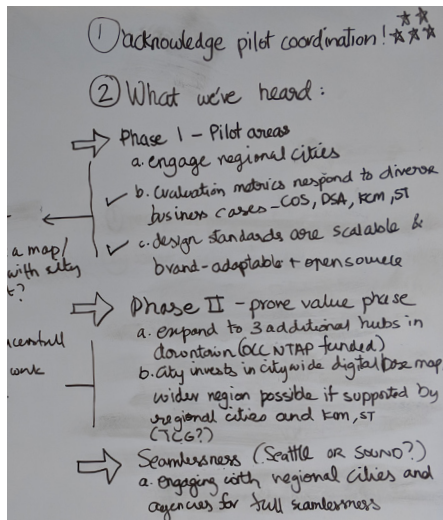 ① acknowledge pilot coordination!
② What we've heard:
Phase I - Pilot areas
a. engage regional cities
b. Evaluation metrics respond to diverse
business cases - COS, DSA, KCM, ST
c. design standards are scalable &
brand-adaptable + opensource
a map/
with city
t?
Phase II - prove value phase
a. expand to 3 additional hubs in
downtown (OCC NTAP funded)
b. City invests in citywide digital base map
wider region possible if supported by
regional cities and KCM, ST
(TCG?)
work
Seamlessness (Seattle OR SOUND?)
a. engaging with regional cities and
agencies for full seamlessness